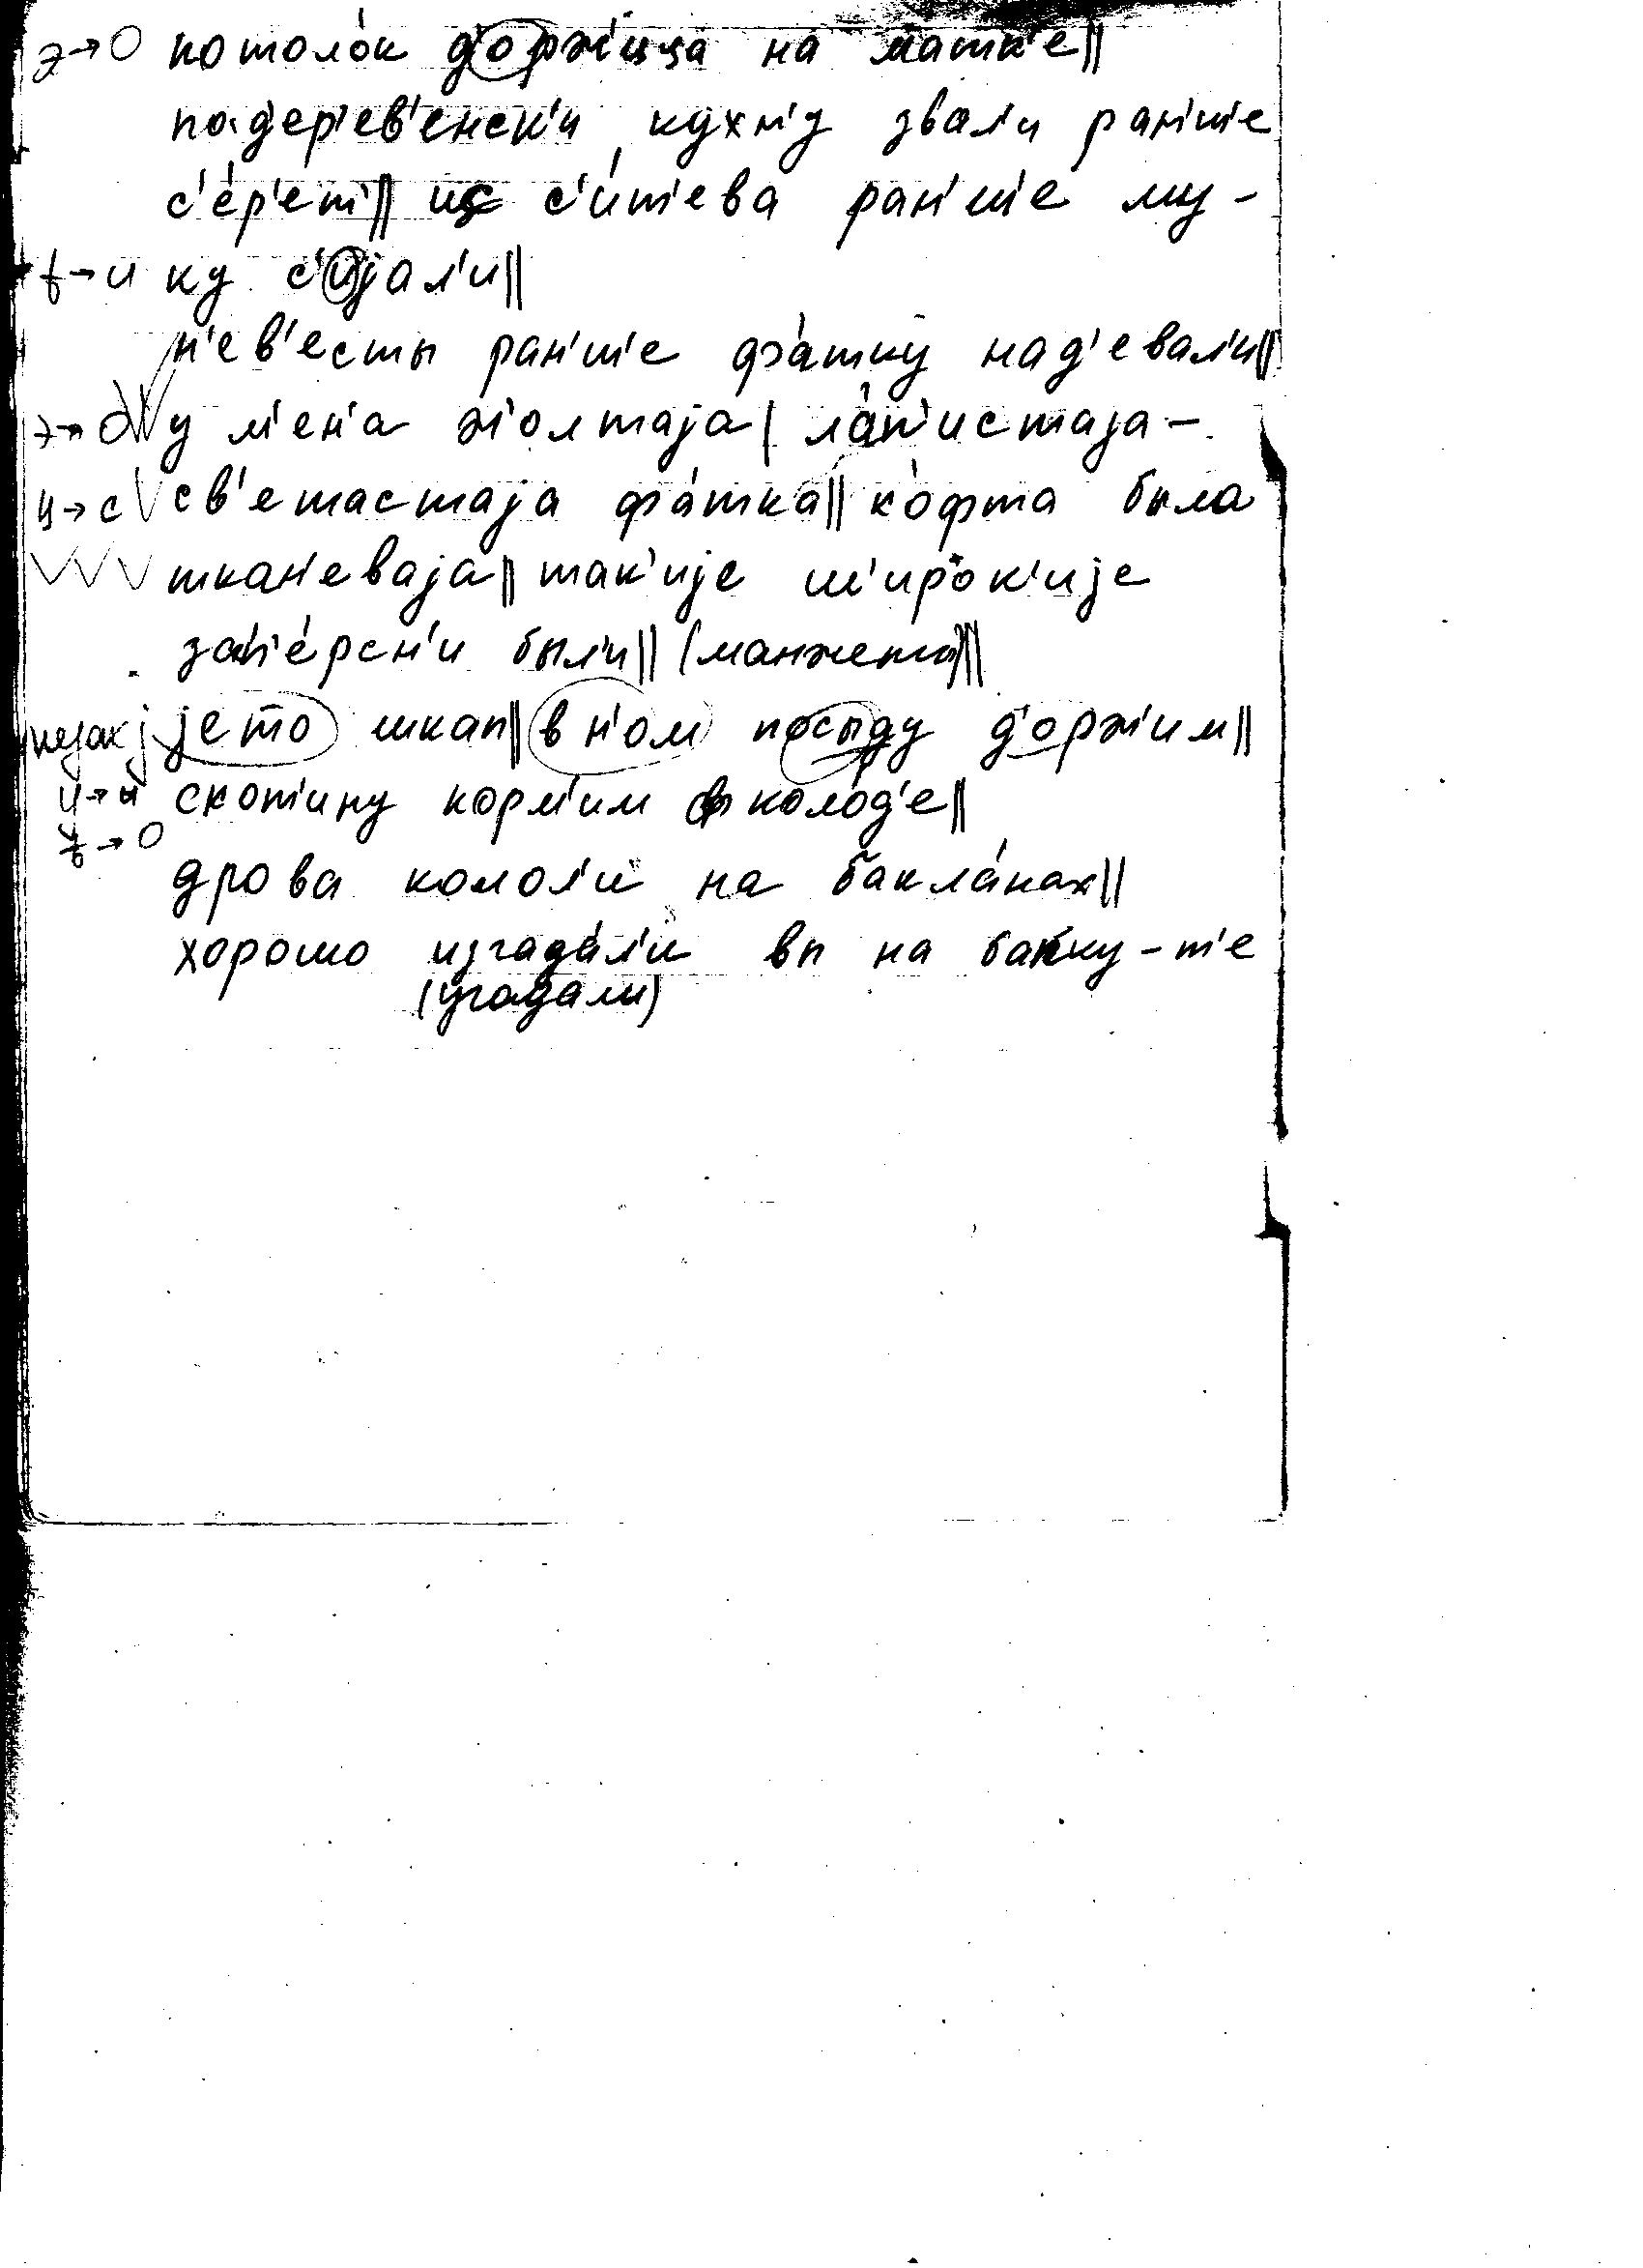 э→о потоло́к д'орж'ицца на матк'е||
под'ер'ев'енск'и кухн'у звал'и ран'ш'е
с'е́р'ет'|| ис с'и́т'ева ран'ш'е му-
ѣ→и ку с'ијал'и||
н'ев'есты ран'ш'е фа́тку над'евал'и||
э→о у м'ен'а ж'олтаја| ла́п'истаја –
ц→с св'етастаја фа́тка|| ко́фта была
ткан'еваја|| так'ије ш'ирок'ије
зап'е́рсн'и был'и|| (манжеты)||
јето шкап|| в н'ом посыду д'орж'им||
и→ы скот'ину корм'им в коло́д'е||
ѣ→о
дрова колол'и на бакла́нах||
хорошо изгада́л'и вы на банку-т'е
(угадали)